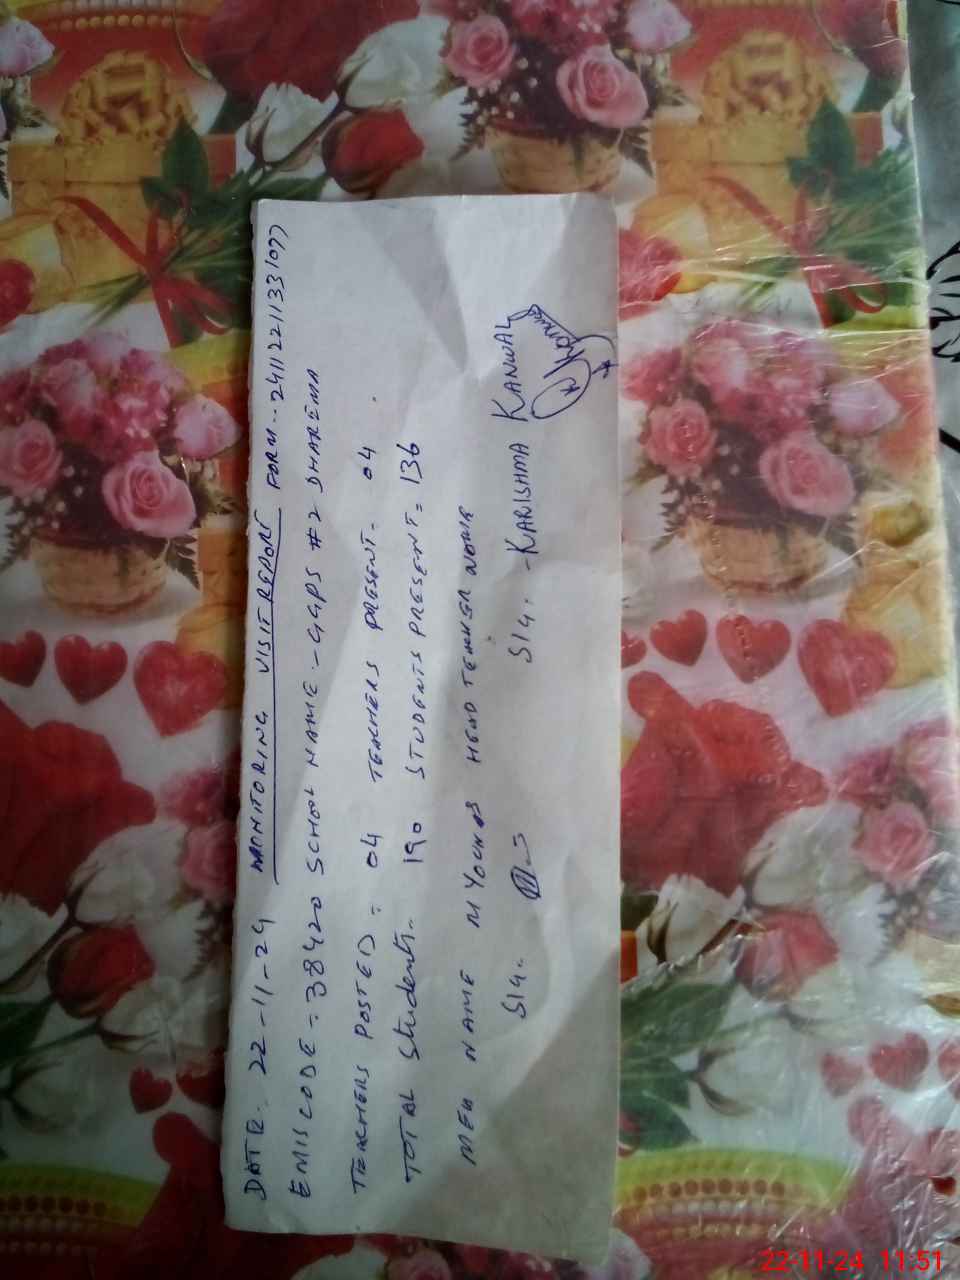 DATE. 22-11-24 MONITORING VISIT REPORT FORM--241122113310??
EMIS CODE-38420 SCHOOL NAME-GGPS #2 DHAREMA
TEACHERS POSTED: 04 TEACHERS PRESENT. 04
TOTAL Students.. 190 STUDENTS PRESENT= 136
MEA NAME M YOUNAS HEAD TEACHER NAME
SIG. SIG.- KARISHMA KANWAL
22-11-24 11:51